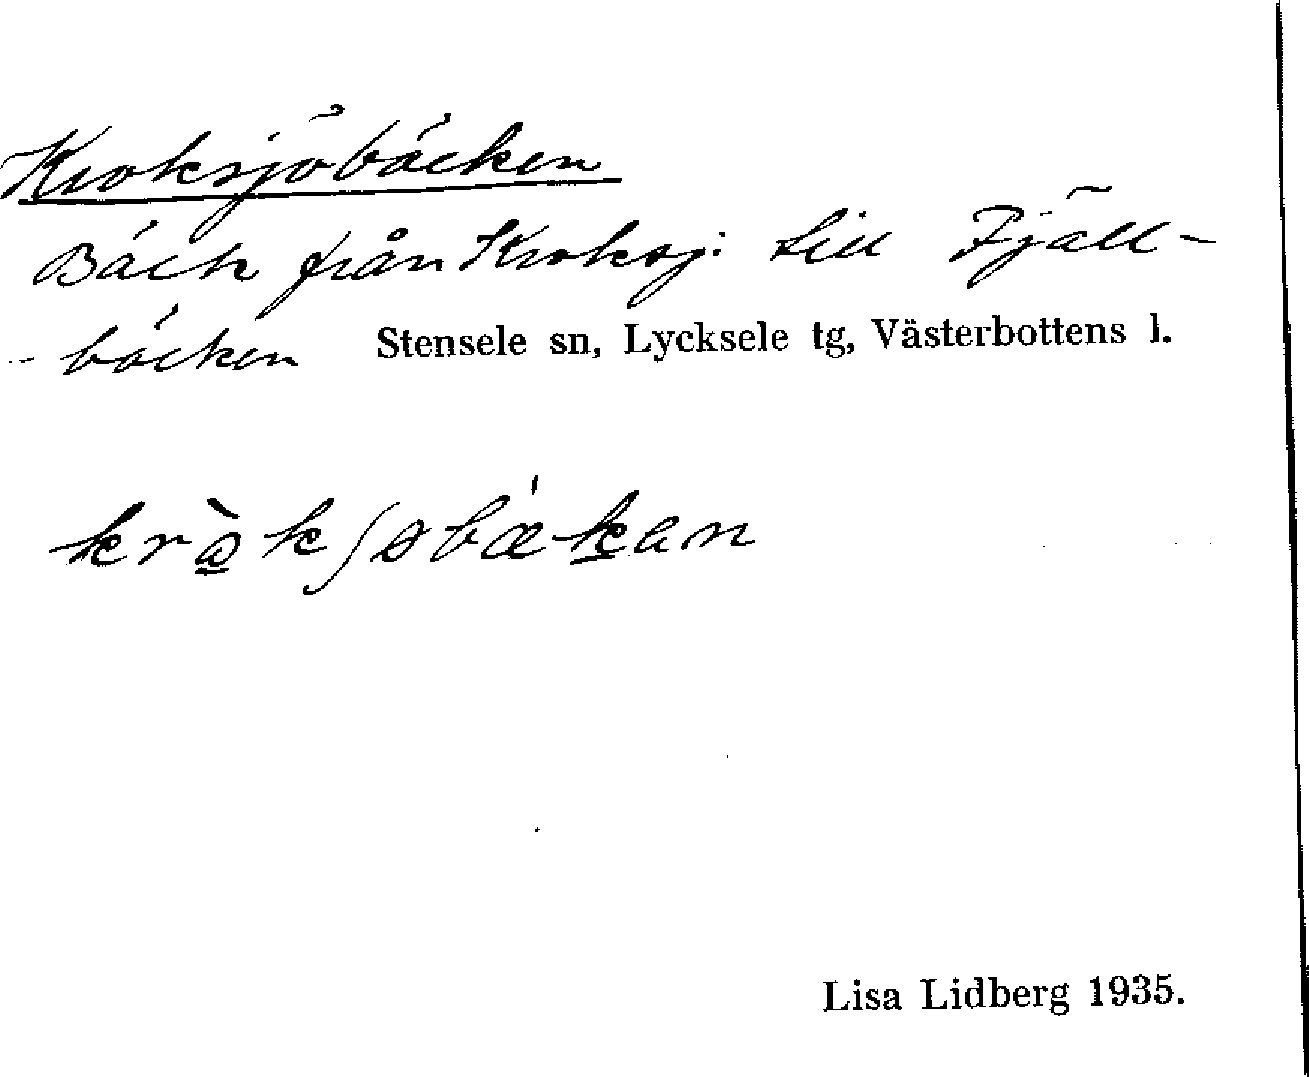 Kroksjöbäcken
Bäck från Kroksj: till Fjäll-
- bäcken Stensele sn, Lycksele tg, Västerbottens l.
Lisa Lidberg 1935.